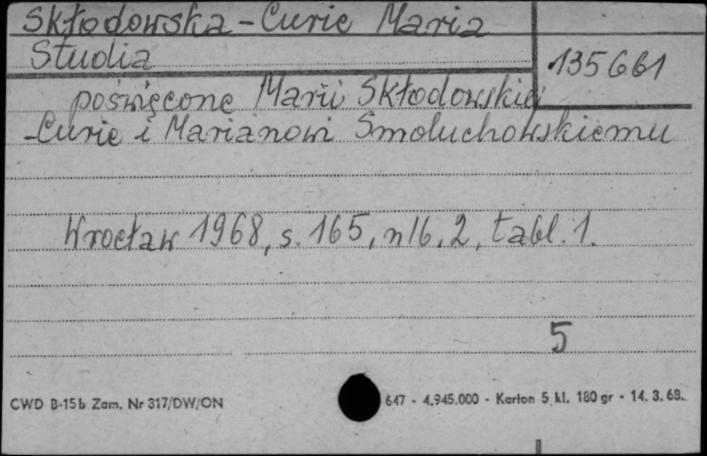 Skłodowska-Curie Maria
Studia
135661
poświęcone Marii Skłodowskiej
-Curie i Marianowi Smoluchowskiemu
Wrocław 1968, s. 165, nlb. 2, tabl. 1.
5
CWD B-15b Zam. Nr 317/DW/ON
647 - 4.945.000 - Karton 5 kl. 180 gr - 14. 3. 68.